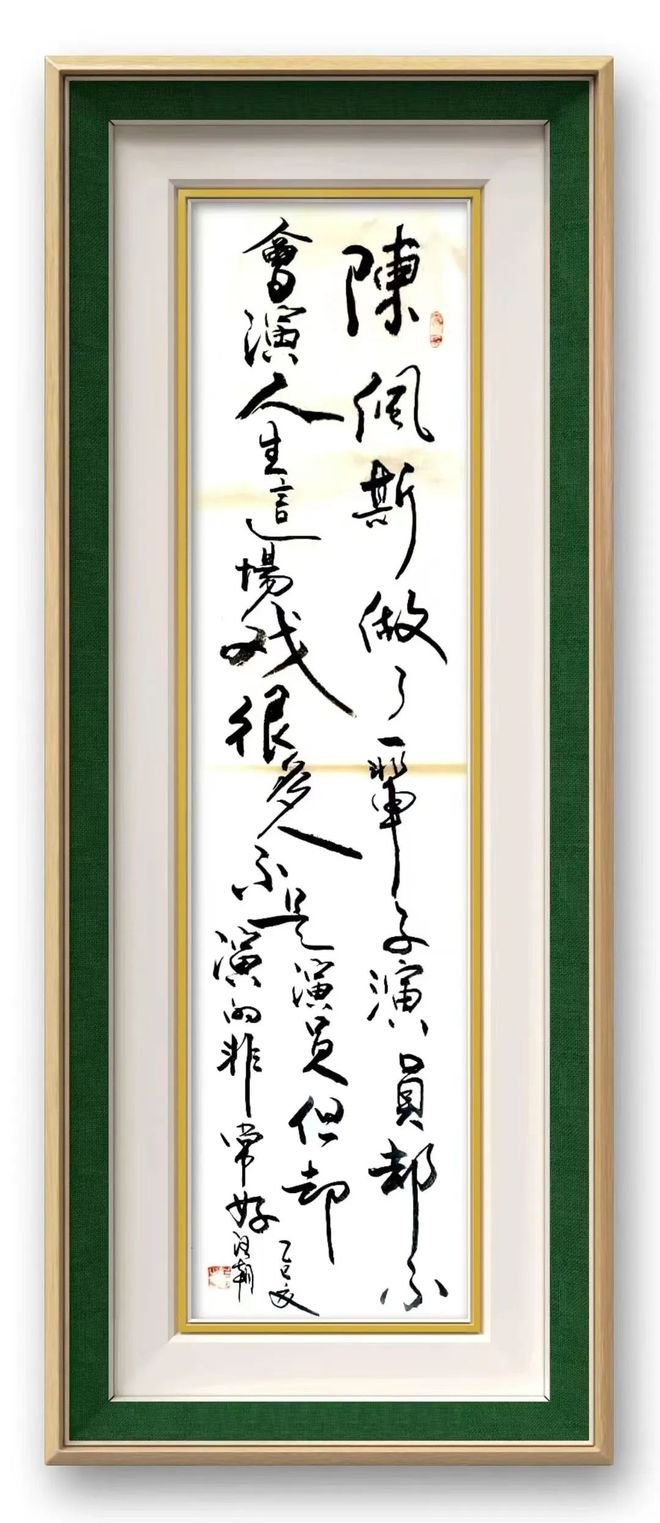 陳佩斯做了一輩子演員却不
會演人生這場戏很多人不是演员但却
演的非常好
乙巳夏